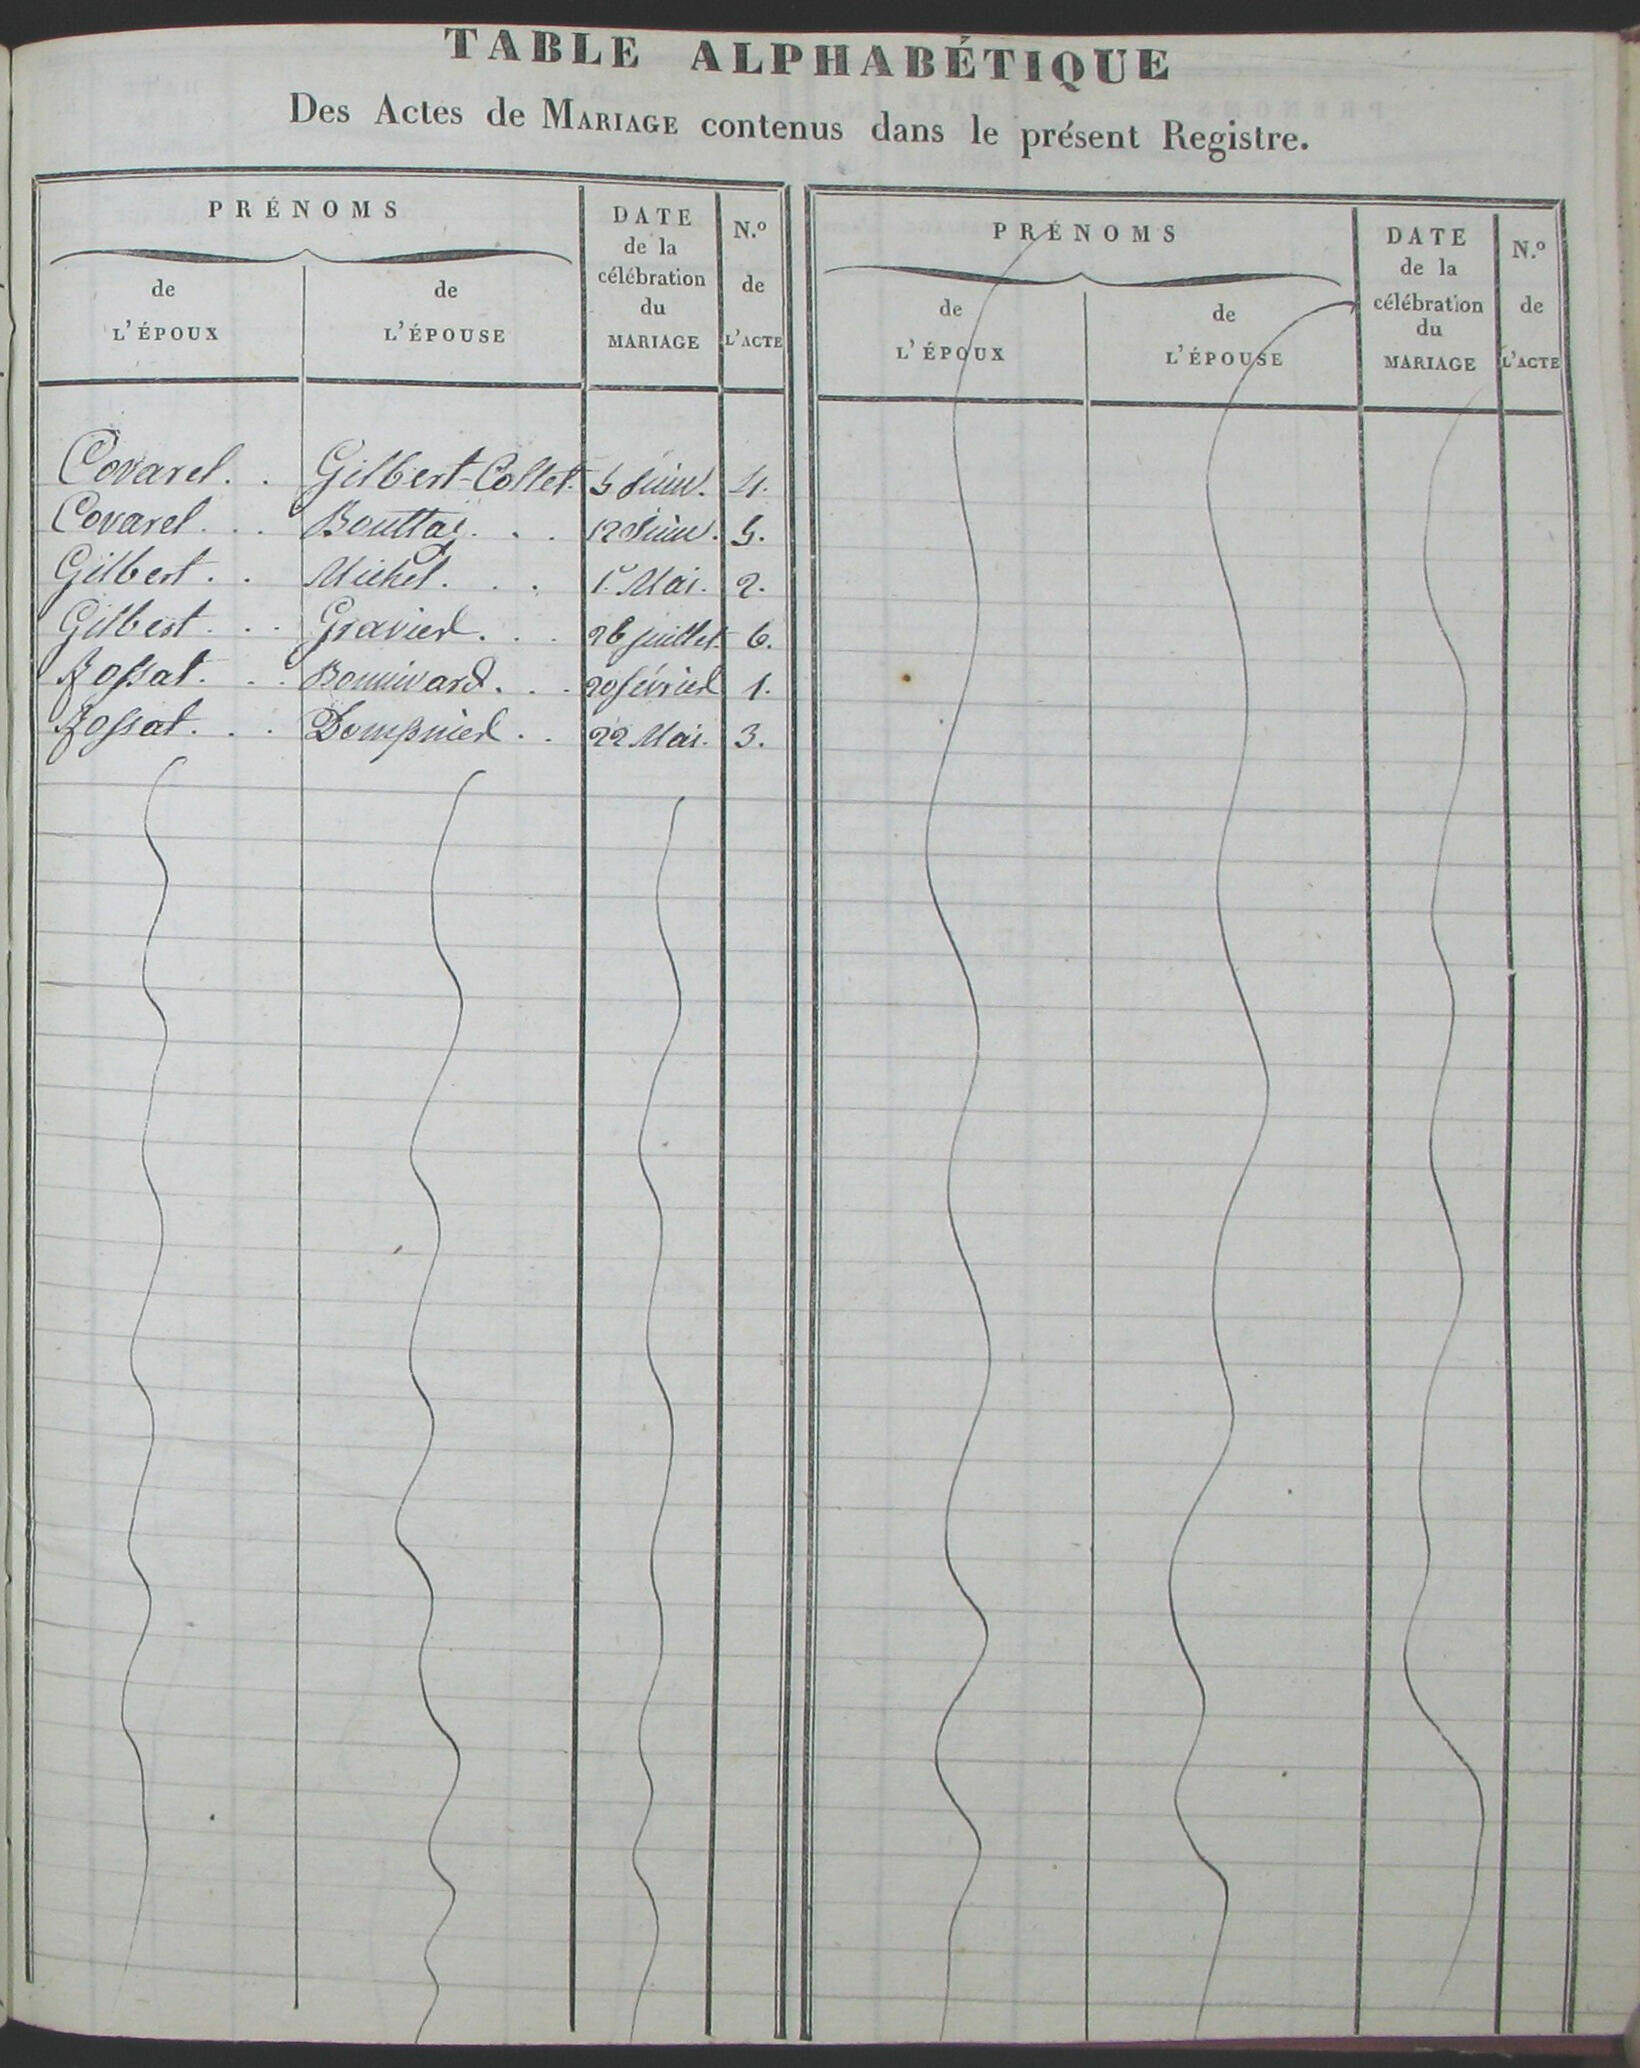 TABLE ALPHABÉTIQUE
Des Actes de MARIAGE contenus dans le présent Registre.
PRÉNOMS
de
L'ÉPOUX
de
L'ÉPOUSE
DATE
de la
célébration
du
MARIAGE
N.º
de
L'ACTE
PRÉNOMS
de
L'ÉPOUX
de
L'ÉPOUSE
DATE
de la
célébration
du
MARIAGE
N.º
de
L'ACTE
Covarel. . Gilbert-Collet. 5 Juin. 4.
Covarel. . . Bouttaz. . . 12 Juin. 5.
Gilbert. . Michel. . . 1.er Mai. 2.
Gilbert. . . Gravier. . . 26 juillet. 6.
Rossat. . . Bonnivard. . . 20 février 1.
Rossat. . . Dompnier. . 22 Mai. 3.